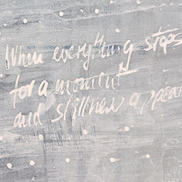 When everything stops
for a moment
and stillness appear